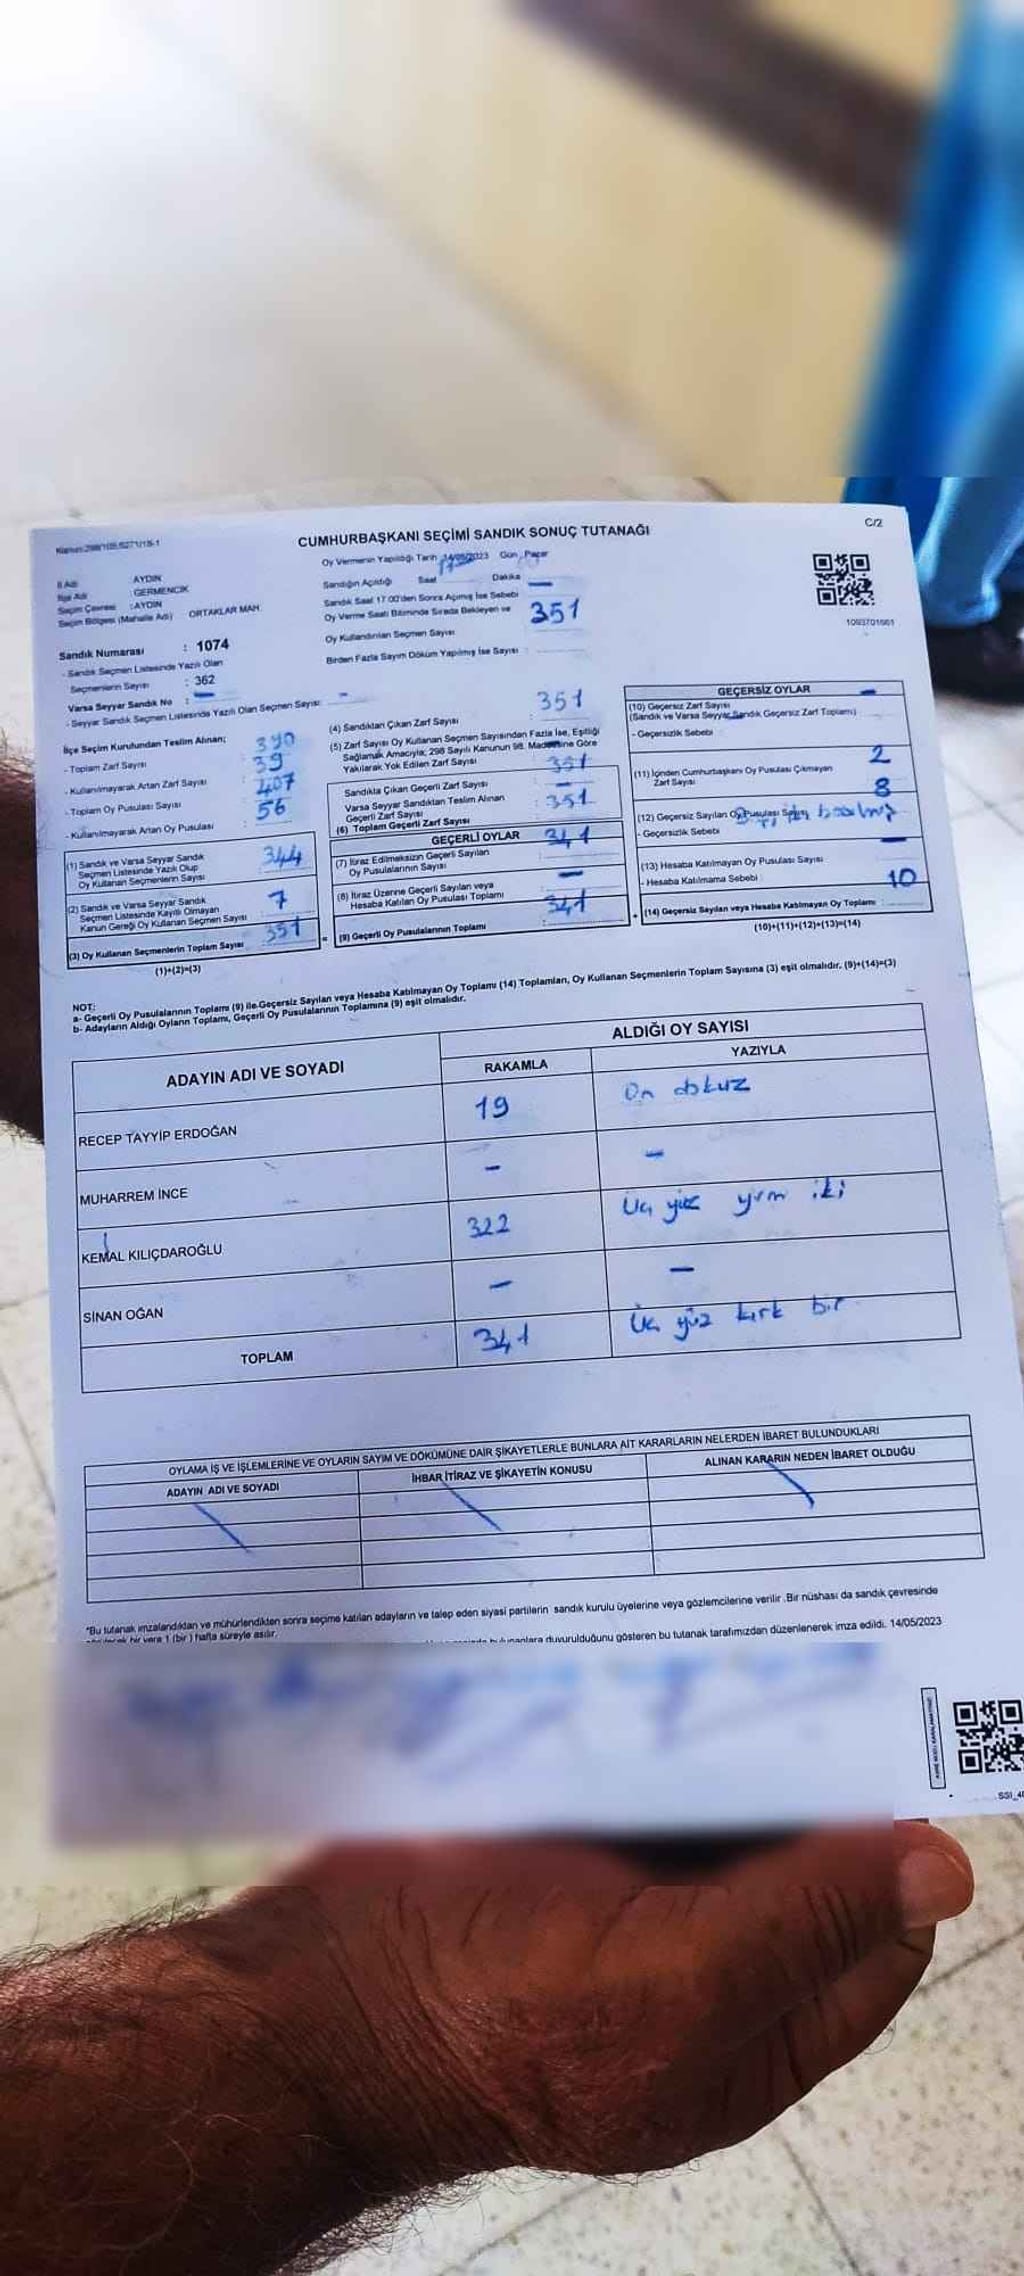 C/2
CUMHURBAŞKANI SEÇİMİ SANDIK SONUÇ TUTANAĞI
İl Adı AYDIN
İlçe Adı GERMENCİK
Seçim Çevresi : AYDIN
Seçim Bölgesi (Mahalle Adı) ORTAKLAR MAH.
Sandık Numarası : 1074
- Sandık Seçmen Listesinde Yazılı Olan
Seçmenlerin Sayısı : 362
Varsa Seyyar Sandık No : -
- Seyyar Sandık Seçmen Listesinde Yazılı Olan Seçmen Sayısı: -
Oy Vermenin Yapıldığı Tarih 14/05/2023 Gün Pazar
Sandığın Açıldığı Saat Dakika
Sandık Saat 17:00'den Sonra Açımış İse Sebebi -
Oy Verme Saati Bitiminde Sırada Bekleyen ve
Oy Kullandırılan Seçmen Sayısı 351
Birden Fazla Sayım Döküm Yapılmış İse Sayısı :
1093701001
İlçe Seçim Kurulundan Teslim Alınan;
- Toplam Zarf Sayısı 390
- Kullanılmayarak Artan Zarf Sayısı 39
- Toplam Oy Pusulası Sayısı 407
- Kullanılmayarak Artan Oy Pusulası 56
(1) Sandık ve Varsa Seyyar Sandık
Seçmen Listesinde Yazılı Olup
Oy Kullanan Seçmenlerin Sayısı 344
(2) Sandık ve Varsa Seyyar Sandık
Seçmen Listesinde Kayıtlı Olmayan
Kanun Gereği Oy Kullanan Seçmen Sayısı 7
(3) Oy Kullanan Seçmenlerin Toplam Sayısı 351
(1)+(2)=(3)
(4) Sandıktan Çıkan Zarf Sayısı 351
(5) Zarf Sayısı Oy Kullanan Seçmen Sayısından Fazla İse, Eşitliği
Sağlamak Amacıyla; 298 Sayılı Kanunun 98. Maddesine Göre
Yakılarak Yok Edilen Zarf Sayısı -
Sandıkta Çıkan Geçerli Zarf Sayısı 351
Varsa Seyyar Sandıktan Teslim Alınan
Geçerli Zarf Sayısı -
(6) Toplam Geçerli Zarf Sayısı 351
GEÇERLİ OYLAR
(7) İtiraz Edilmeksizin Geçerli Sayılan
Oy Pusulalarının Sayısı 341
(8) İtiraz Üzerine Geçerli Sayılan veya
Hesaba Katılan Oy Pusulası Toplamı -
(9) Geçerli Oy Pusulalarının Toplamı 341
GEÇERSİZ OYLAR
(10) Geçersiz Zarf Sayısı -
(Sandık ve Varsa Seyyar Sandık Geçersiz Zarf Toplamı)
- Geçersizlik Sebebi
(11) İçinden Cumhurbaşkanı Oy Pusulası Çıkmayan
Zarf Sayısı 2
(12) Geçersiz Sayılan Oy Pusulası Sayısı 8
- Geçersizlik Sebebi
(13) Hesaba Katılmayan Oy Pusulası Sayısı -
- Hesaba Katılmama Sebebi
(14) Geçersiz Sayılan veya Hesaba Katılmayan Oy Toplamı : 10
(10)+(11)+(12)+(13)=(14)
NOT:
a- Geçerli Oy Pusulalarının Toplamı (9) ile Geçersiz Sayılan veya Hesaba Katılmayan Oy Toplamı (14) Toplamları, Oy Kullanan Seçmenlerin Toplam Sayısına (3) eşit olmalıdır. (9)+(14)=(3)
b- Adayların Aldığı Oyların Toplamı, Geçerli Oy Pusulalarının Toplamına (9) eşit olmalıdır.
ADAYIN ADI VE SOYADI
ALDIĞI OY SAYISI
RAKAMLA YAZIYLA
RECEP TAYYİP ERDOĞAN 19 On dokuz
MUHARREM İNCE - -
KEMAL KILIÇDAROĞLU 322 Üç yüz yirm iki
SİNAN OĞAN - -
TOPLAM 341 Üç yüz kırk bir
OYLAMA İŞ VE İŞLEMLERİNE VE OYLARIN SAYIM VE DÖKÜMÜNE DAİR ŞİKAYETLERLE BUNLARA AİT KARARLARIN NELERDEN İBARET BULUNDUKLARI
ADAYIN ADI VE SOYADI İHBAR İTİRAZ VE ŞİKAYETİN KONUSU ALINAN KARARIN NEDEN İBARET OLDUĞU
*Bu tutanak imzalandıktan ve mühürlendikten sonra seçime katılan adayların ve talep eden siyasi partilerin sandık kurulu üyelerine veya gözlemcilerine verilir. Bir nüshası da sandık çevresinde
bir yere 1 (bir) hafta süreyle asılır.
bulunanlara duyurulduğunu gösteren bu tutanak tarafımızdan düzenlenerek imza edildi. 14/05/2023